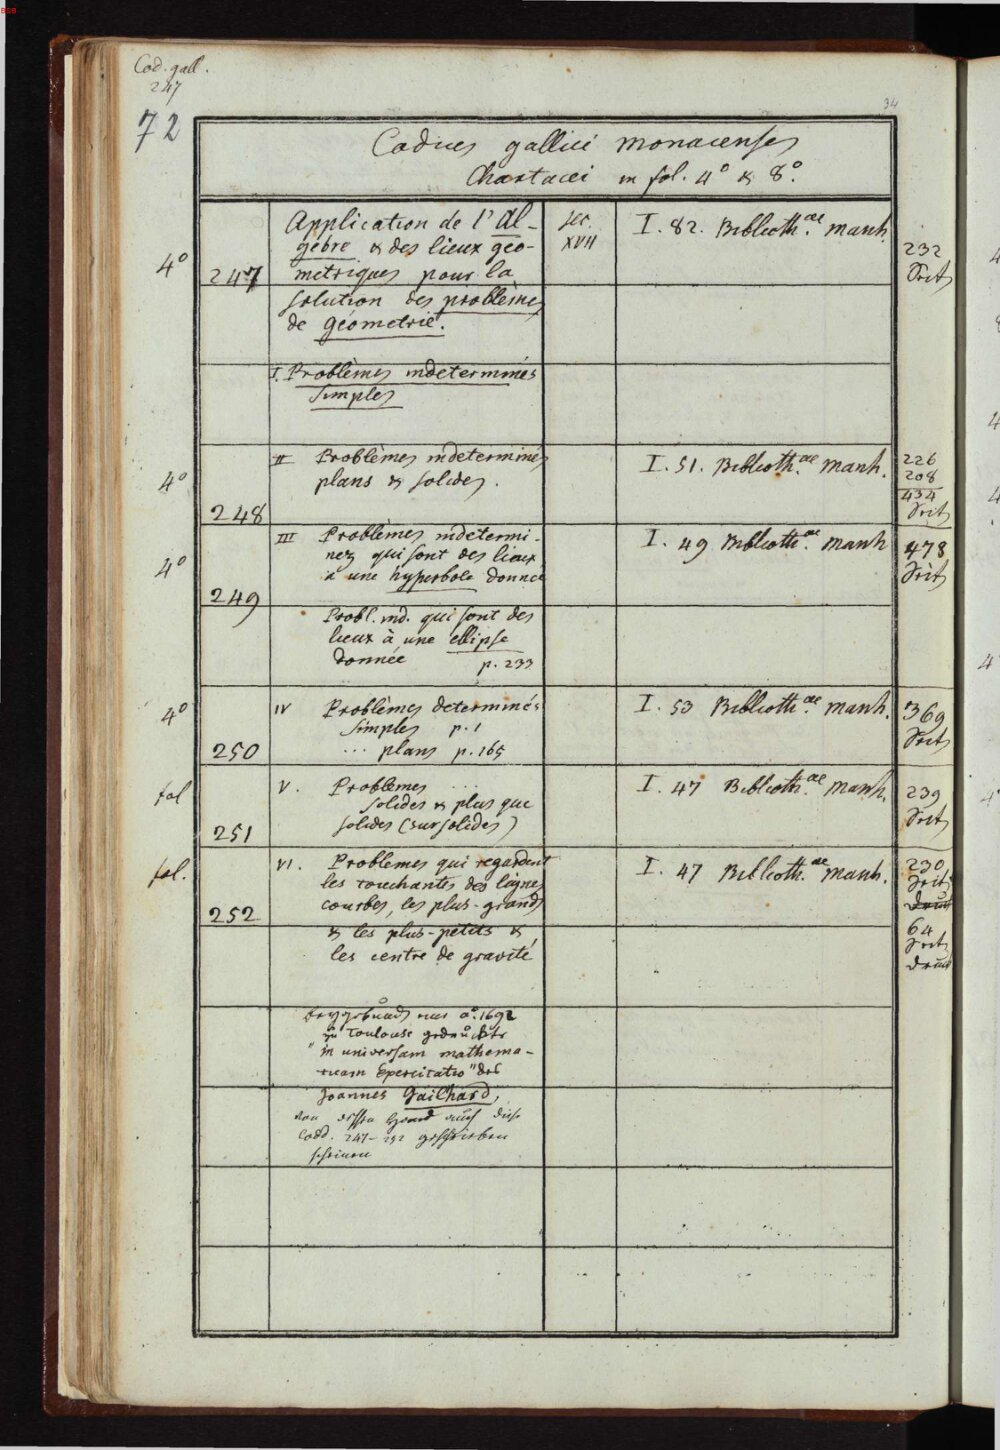 BSB
Cod. gall.
247
72
34
Codices gallici monacenses
Chartacei in fol. 4° & 8°.
4°
247
Application de l'Al-
gebre & des lieux géo-
metriques pour la
solution des problèmes
de géometrie.
sec.
XVII
I. 82. Biblioth.ae Manh.
232
Seit
I. Problèmes indeterminés
simples
4°
248
II Problèmes indeterminés
plans & solides.
I. 51. Biblioth.ae Manh.
226
208
434
Seit
4°
249
III Problèmes indetermi-
nez qui sont des lieux
à une hyperbole donnée
I. 49 Biblioth.ae Manh
478
Seit
Probl. ind. qui sont des
lieux à une ellipse
donnée p. 233
4°
250
IV Problèmes determinés
simples p. 1
... plans p. 165
I. 53 Biblioth.ae Manh.
369
Seit
fol
251
V. Problemes ...
solides & plus que
solides (sursolides)
I. 47 Biblioth.ae Manh.
239
Seit
fol.
252
VI. Problemes qui regardent
les touchantes des lignes
courbes, les plus-grands
& les plus-petits &
les centre de gravité
I. 47 Biblioth.ae Manh.
230
Seit
64
Seit
beygebunden nur a°. 1692
zu Toulouse gedruckte
"in universam mathema-
ticam Exercitatio" des
Joannes Gailhard,
von dessen Hand auch diese
Codd. 247-252 geschrieben
scheinen